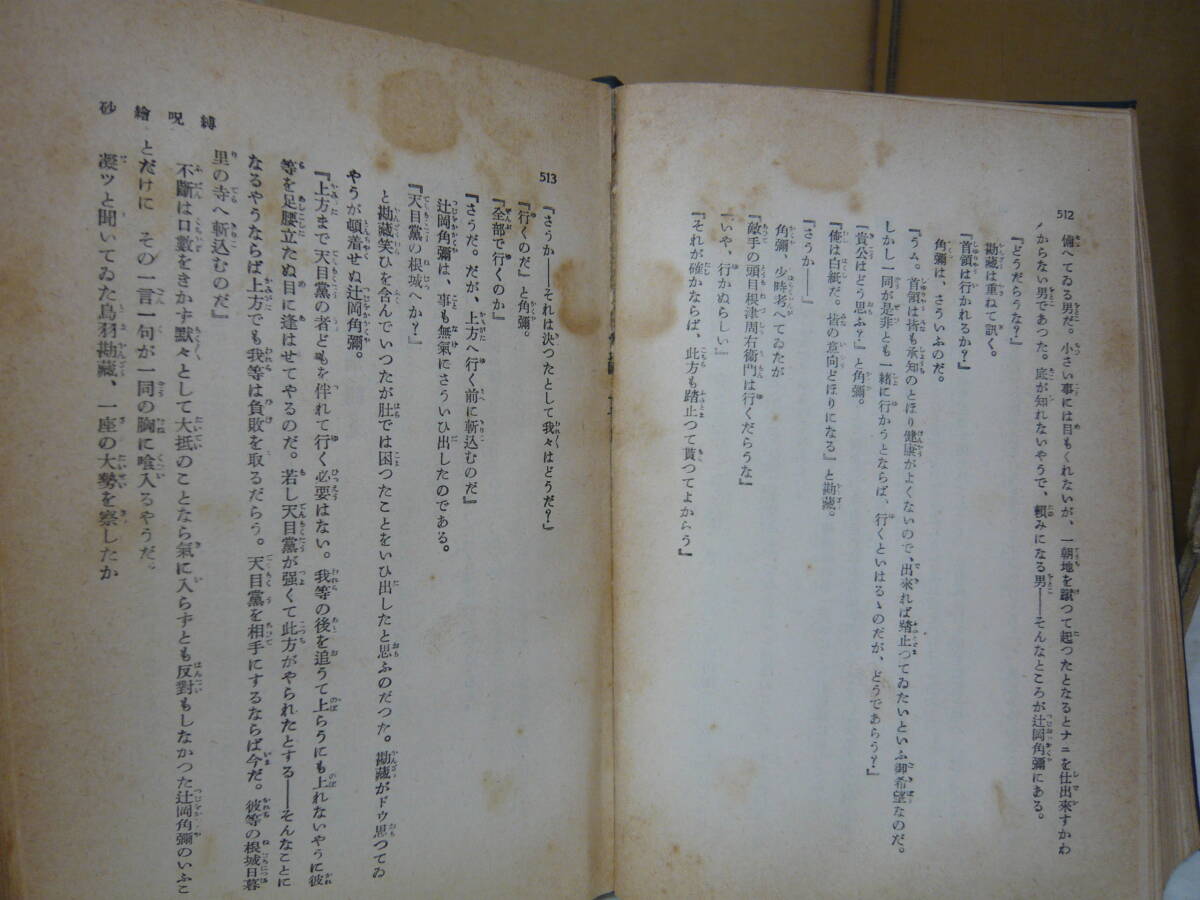 512
備へてゐる男だ。小さい事には目もくれないが、一朝地を蹴つて起つたとなるとナニを仕出來すかわ
からない男であつた。底が知れないやうで、頼みになる男――そんなところが辻岡角彌にある。
『どうだらうな?』
勘藏は重ねて訊く。
『首領は行かれるか?』
角彌は、さういふのだ。
『うム。首領は皆も承知のとほり健康がよくないので、出來れば踏止つてゐたいといふ御希望なのだ。
しかし一同が是非とも一緒に行かうとならば、行くといはるゝのだが、どうであらう?』
『貴公はどう思ふ?』と角彌。
『俺は白紙だ。皆の意向どほりになる』と勘藏。
『さうか――』
角彌、少時考へてゐたが
『敵手の頭目根津周右衞門は行くだらうな』
『いや、行かぬらしい』
『それが確かならば、此方も踏止つて貰つてよからう』
513
『さうか――それは決つたとして我々はどうだ?』
『行くのだ』と角彌。
『全部で行くのか』
『さうだ。だが、上方へ行く前に斬込むのだ』
辻岡角彌は、事も無氣にさういひ出したのである。
『天目黨の根城へか?』
と勘藏笑ひを含んでいつたが肚では困つたことをいひ出したと思ふのだつた。勘藏がドウ思つてゐ
やうが頓着せぬ辻岡角彌。
『上方まで天目黨の者どもを伴れて行く必要はない。我等の後を追うて上らうにも上れないやうに彼
等を足腰立たぬ目に逢はせてやるのだ。若し天目黨が强くて此方がやられたとする――そんなことに
なるやうならば上方でも我等は負敗を取るだらう。天目黨を相手にするならば今だ。彼等の根城日暮
里の寺へ斬込むのだ』
不斷は口數をきかず默々として大抵のことなら氣に入らずとも反對もしなかつた辻岡角彌のいふこ
とだけに その一言一句が一同の胸に喰入るやうだ。
凝ッと聞いてゐた鳥羽勘藏、一座の大勢を察したか
砂繪呪縛